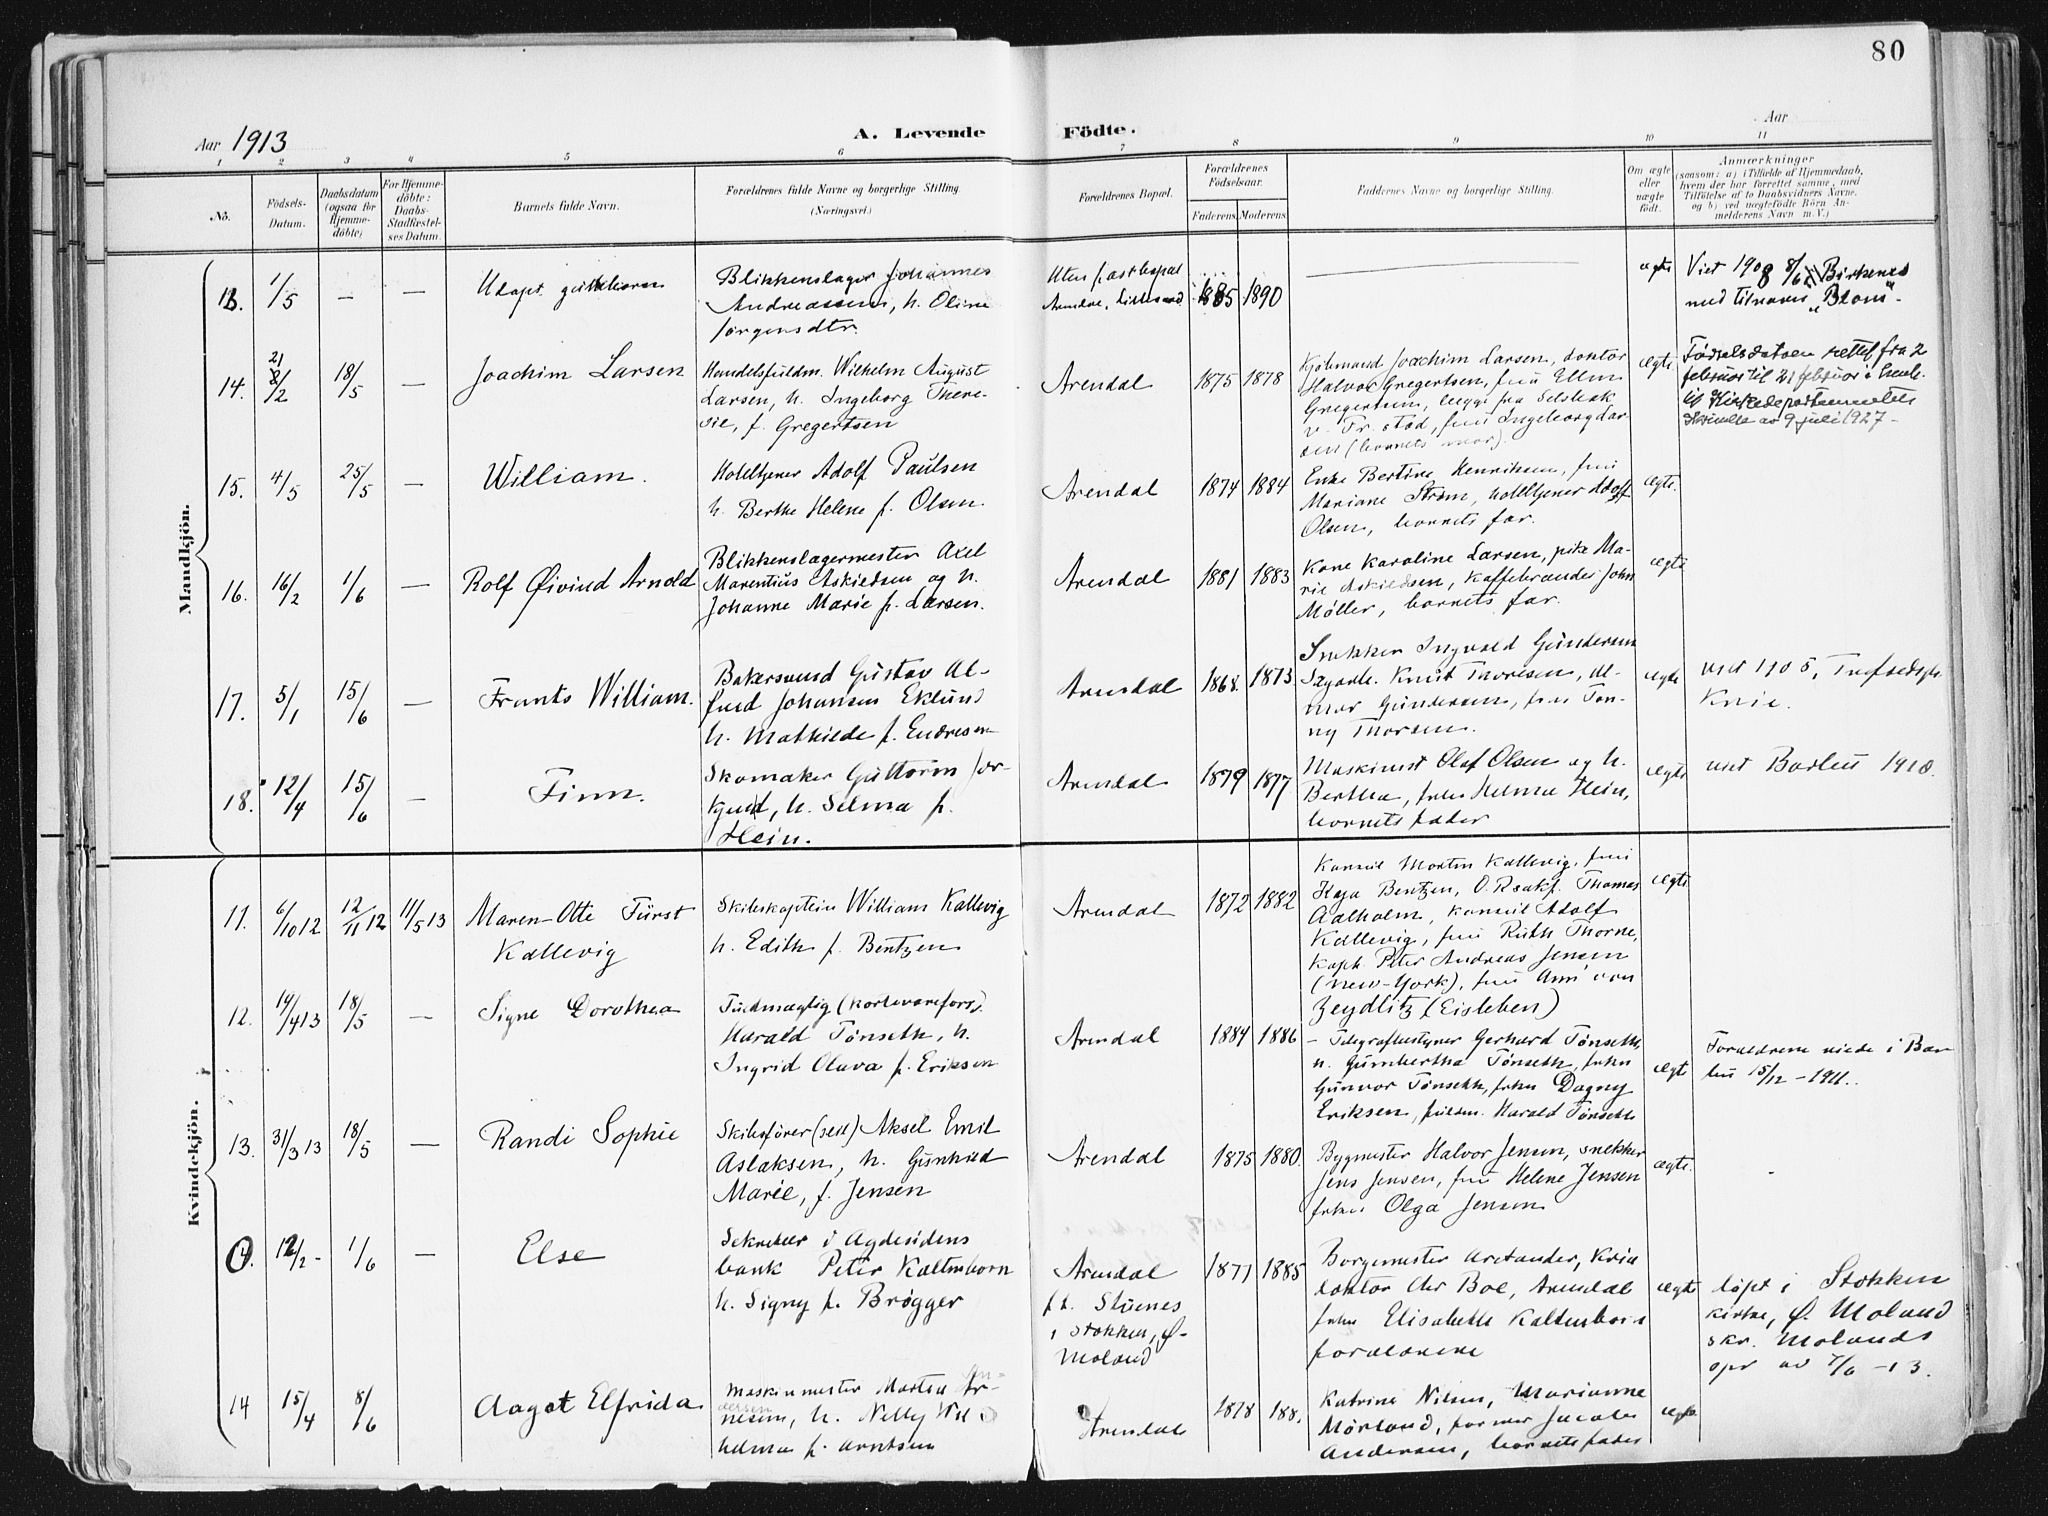 80
Aar 1913
A. Levende Födte.
Aar
1 2 3 4 5 6 7 8 9 10 11
No.
Födsels-Datum.
Daabsdatum (ogsaa for Hjemme-döbte)
For Hjemme-döbte: Daabs-Stadfæstel-ses Datum.
Barnets fulde Navn.
Forældrenes fulde Navne og borgerlige Stilling. (Næringsvei.)
Forældrenes Bopæl.
Forældrenes Födselsaar.
Faderens. Moderens.
Faddernes Navne og borgerlige Stilling.
Om ægte eller uægte födt.
Anmærkninger
(saasom: a) i Tilfælde af Hjemmedaab,
hvem der har forrettet samme, med
Tilföielse af to Daabsvidners Navne.
og b) ved uægtefödte Börn An-
melderens Navn m. V.)
Mandkjön.
13. 1/5 — —
Udøpt guttebarn
Blikkenslager Johannes
Andreassen, h. Oline
Jørgensdtr.
Uten fast bopæl
Arendal, Lillesand
1885 1890
ægte
Viet 1908 8/6 i Birkenes
med tilnavn „Blom“.
14. 21/2 18/5 —
Joachim Larsen
Handelsfuldm. Wilhelm August
Larsen, h. Ingeborg There-
sie, f. Gregertsen
Arendal
1875 1878
Kjøbmand Joachim Larsen, doktor
Halvor Gregertsen, fru Ellen
Gregertsen, begge fra Selsbak
v. Fr.stad, fru Ingeborg Lar-
sen (barnets mor).
ægte
Fødselsdatoen rettet fra 2
februar til 21 februar i henh.
til Kirkedepartementets
skrivelse av 9 juli 1927 -
15. 4/5 25/5 —
William.
Hotelltjener Adolf Paulsen
h. Berthe Helene f. Olsen.
Arendal
1874 1884
Enke Bertine Henriksen, fru
Mariane Strøm, hotelltjener Adolf
Olsen, barnets far.
ægte.
16. 16/2 1/6 —
Rolf Øivind Arnold
Blikkenslagermester Axel
Marentius Askildsen og h.
Johanne Marie f. Larsen.
Arendal
1881 1883
Kone Karoline Larsen, pike Ma-
rie Askildsen, kaffebrænder John
Møller, barnets far.
ægte
17. 5/1 15/6 —
Frants William.
Bakersvend Gustav Al-
fred Johansen Eklund
h. Mathilde f. Endresen
Arendal
1868. 1873
Snekker Ingvald Gundersen
Sagarb. Knut Thoresen, Al-
mar Gundersen, frk Ton-
ny Thorsen.
ægte
viet 1905,
18. 12/4 15/6 —
Finn.
Skomaker Guttorm Jør-
kjend, h. Selma f.
Hein.
Arendal
1879 1877
Maskinist Olaf Olsen og h.
Bertha, frk Helma Hein,
barnets fader
ægte
viet Barbu 1910.
Kvindekjön.
11. 6/10 12 12/11 12 11/5 13
Maren-Otti Fürst
Kallevig
Skibskaptein William Kallevig
h. Edith f. Bentzen
Arendal
1872 1882
Konsul Morten Kallevig, fru
Kaja Bentzen, O.Rsakf. Thomas
Aalholm, konsul Adolf
Kallevig, fru Ruth Thorne,
Kapt. Peter Andreas Jensen
(New-York), fru Anni von
Zeydlitz (Eisleben)
ægte
12. 14/4 13 18/5 —
Signe Dorothea
Fuldmægtig (kortevareforr.)
Harald Tønseth, h.
Ingrid Olava f. Eriksen
Arendal
1884 1886
- Telegrafbestyrer Gerhard Tønseth,
h. Gumbertha Tønseth, frkn
Gunvor Tønseth, frkn Dagny
Eriksen, fuldm. Harald Tønseth
ægte
Forældrene viede i Bar-
bu 15/12 - 1911.
13. 31/3 13 18/5 —
Randi Sophie
Skibsfører (seil) Aksel Emil
Aslaksen, h. Gunhild
Marie, f. Jensen
Arendal
1875 1880.
Bygmester Halvor Jensen, snekker
Jens Jensen, fru Helene Jensen
frkn Olga Jensen
ægte.
12/2 - 1/6 —
Else
Sekretær i Agdesidens
bank Peter Kaltenborn
h. Signy f. Brøgger
Arendal
f.t. Stuenes
i Stokken, Ø-
Moland
1877 1885
Borgemester Arctander, Kr.ia
doktor Chr Boe, Arendal
frkn Elisabeth Kaltenborn
forældrene
ægte
døpt i Stokken
kirke, Ø. Moland
skr. Molands
opr av 7/6 -13.
14 15/4 8/6
Aagot Elfrida
Maskinmester Morten Ar-
nesen, h. Nelly Wil-
helma f. Arntsen
Arendal
1878 188.
Katrine Nilsen, Marianne
Mørland, former Jacob
Andersen, barnets fader
ægte